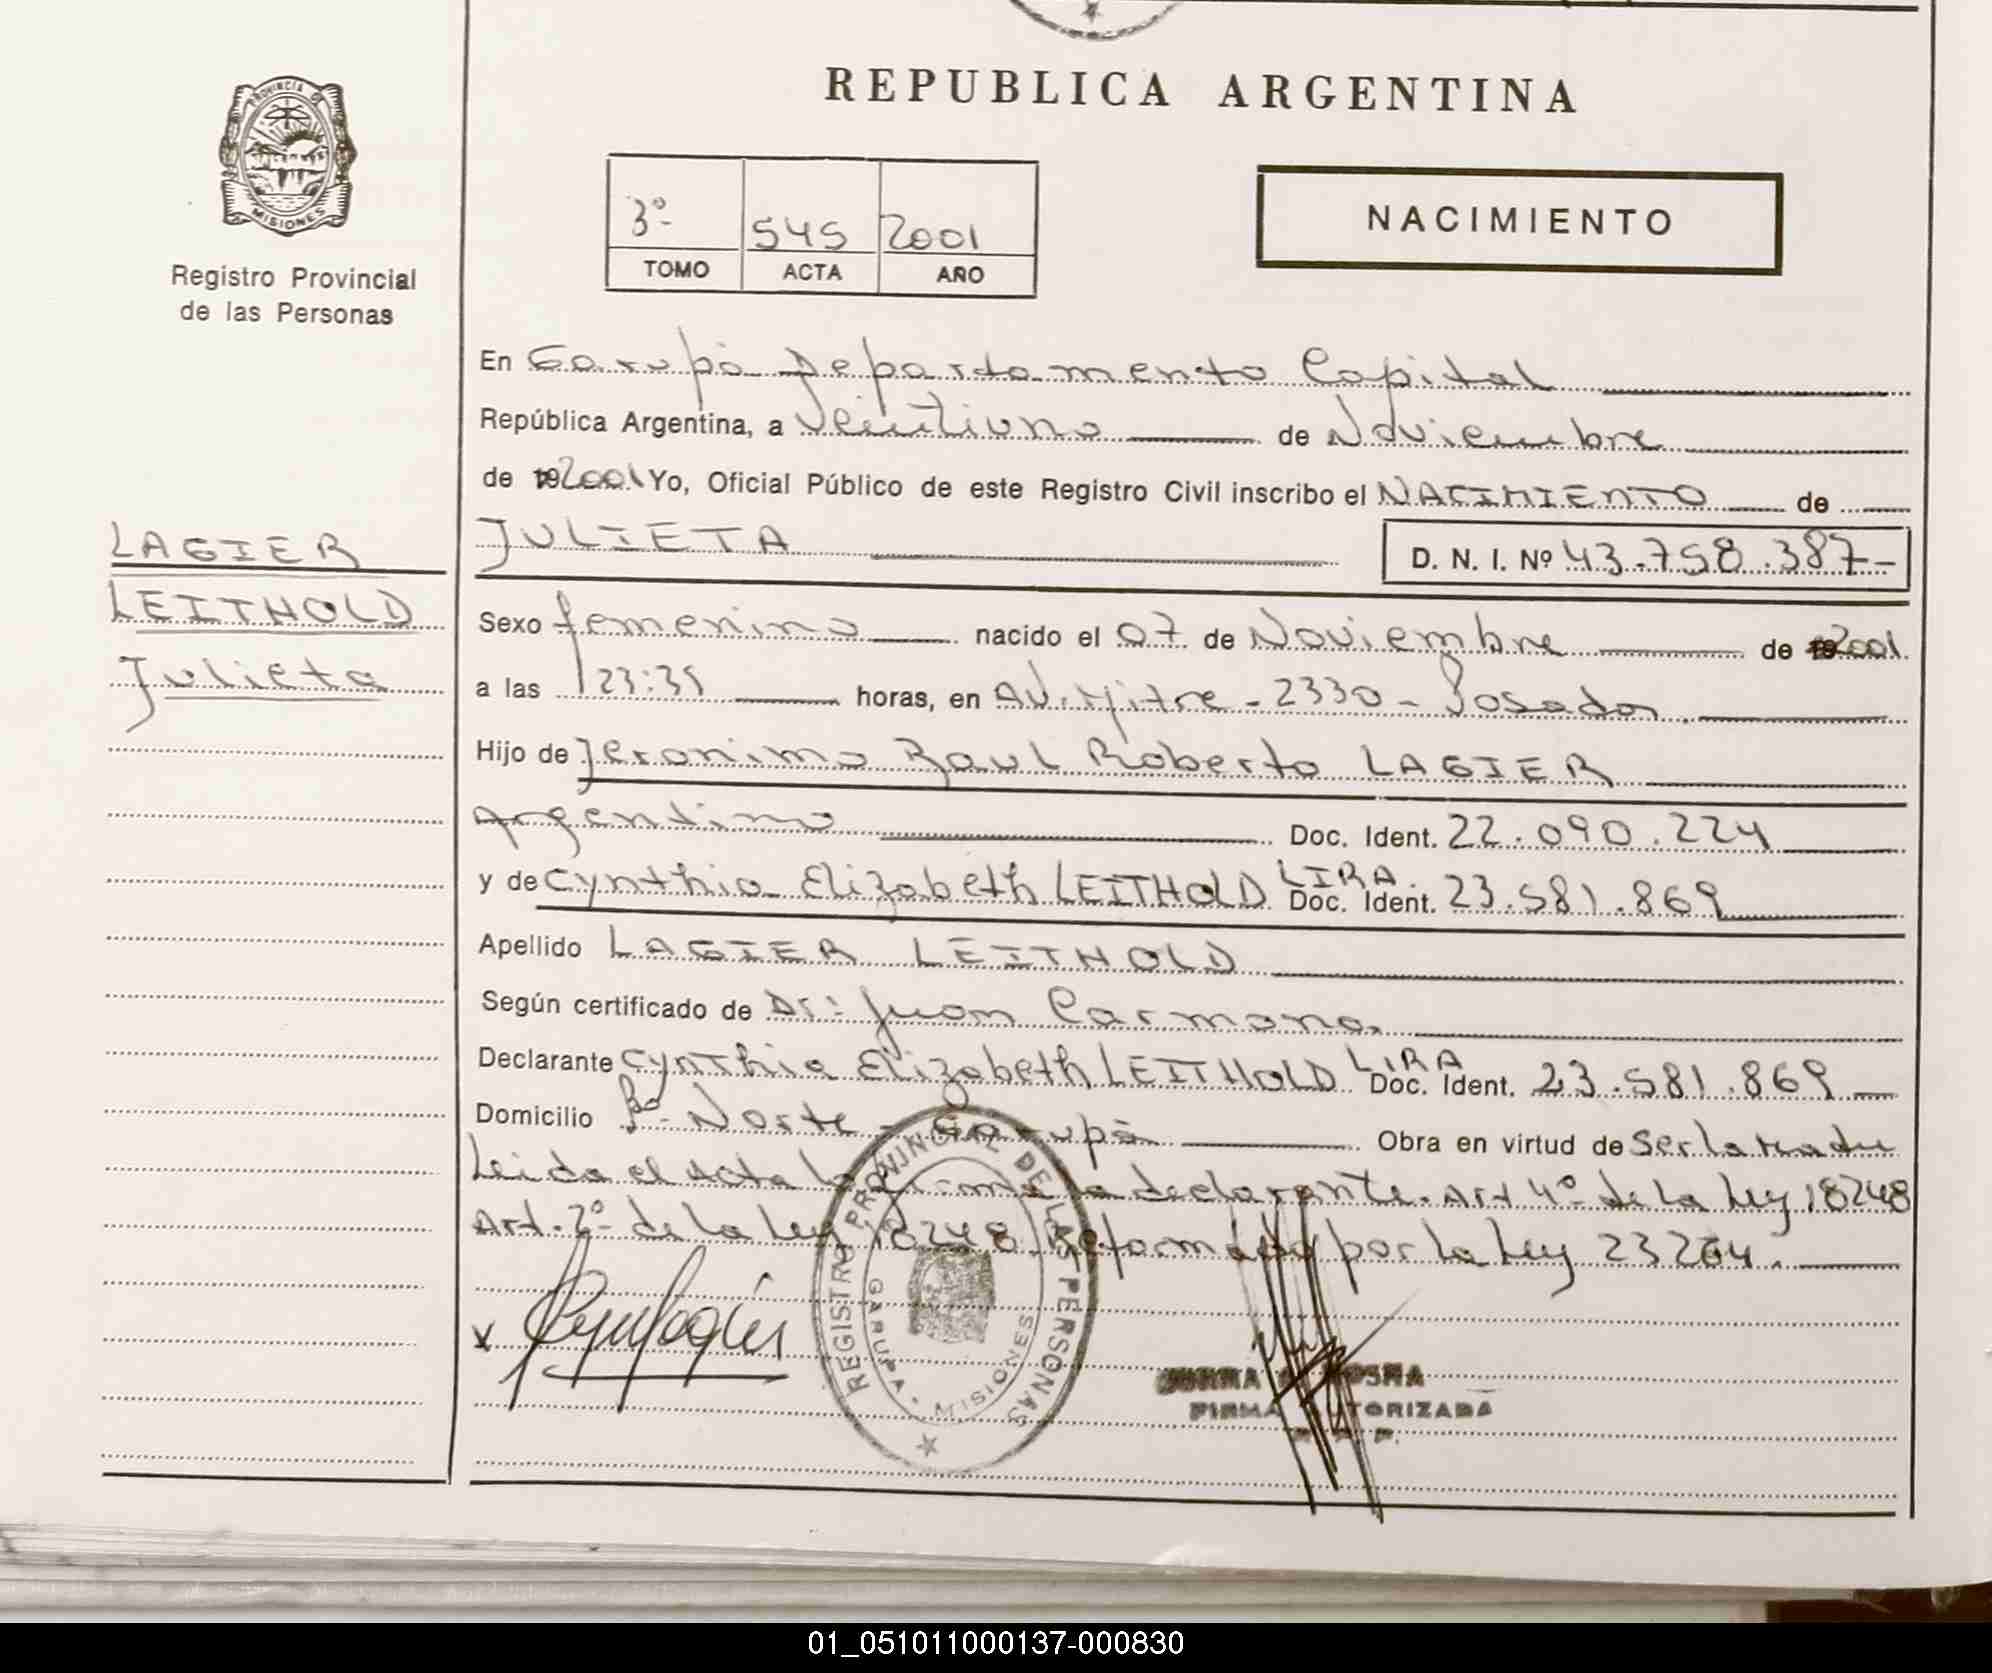 REPUBLICA ARGENTINA
PROVINCIA DE
MISIONES
Registro Provincial
de las Personas
3º 545 2001
TOMO ACTA AÑO
NACIMIENTO
En Garupá Departamento Capital
República Argentina, a Veintiuno de Noviembre
de 19 2001 Yo, Oficial Público de este Registro Civil inscribo el NACIMIENTO de
JULIETA D. N. I. Nº 43.758.387-
LAGIER
LEITHOLD
Julieta
Sexo femenino nacido el 07 de Noviembre de 19 2001
a las 23:35 horas, en Av. Mitre - 2330 - Posadas.
Hijo de Jeronimo Raul Roberto LAGIER
Argentino Doc. Ident. 22.090.224
y de Cynthia Elizabeth LEITHOLD LIRA. Doc. Ident. 23.581.869
Apellido LAGIER LEITHOLD
Según certificado de Dr: Juan Carmona.
Declarante Cynthia Elizabeth LEITHOLD LIRA Doc. Ident. 23.581.869
Domicilio Bº Norte - Garupá Obra en virtud de Ser la Madre
Leida el Acta la firma la declarante. Art 4º de la Ley 18248
Art. 2º de la Ley 18248 Reformado por la Ley 23264.
REGISTRO PROVINCIAL DE LAS PERSONAS
GARUPA - MISIONES
FIRMA AUTORIZADA
01_051011000137-000830